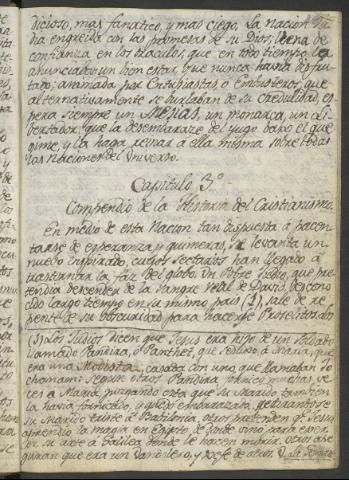 dicioso, mas fanatico, y mas ciego. La Nacion Ju-
dia engreida con las promesas de su Dios, llena de
confianza en los Oraculos, que en todo tiempo la
anunciaban un bien estar, que nunca havia disfru-
tado, animada por Entusiastas, o Embusteros, que
alternativamente se burlaban de su credulidad, es-
pera siempre un Mesias, un monarca, un Li-
bertador, que la desembaraze del yugo bajo el que
gime, y la haga reinar a ella misma sobre todas
las Naciones del Universo.
Capitulo 3º
Compendio de la Historia del Cristianismo
En medio de esta Nacion tan dispuesta a apacen-
tarse de esperanzas y quimeras, se levanta un
nuevo inspirado, cuyos Sectarios han llegado a
trastornar la faz del globo. Un Pobre Judio, que pre-
tendia descender de la Sangre Real de David, descono-
cido largo tiempo en su mismo pais (1), sale de re-
pente de su obscuridad para hacerse Proselitos
(1) Los Judios dicen que Jesus era hijo de un Soldado
llamado Pandira, o Panther, que sedujo a Maria, que
era una Modista, casada con uno, que llamaban Jo-
chanam: segun otros Pandira
ce a Maria, juzgando esta que su Marido
la havia
su Marido triste a Babilonia, otros pretenden q.e Jesus
aprendio la magia en Egipto, de donde vino para exer-
cer su arte a Galilea, donde le hacen morir, otros ase-
guran que era un Vandolero, y Jefe de otros.